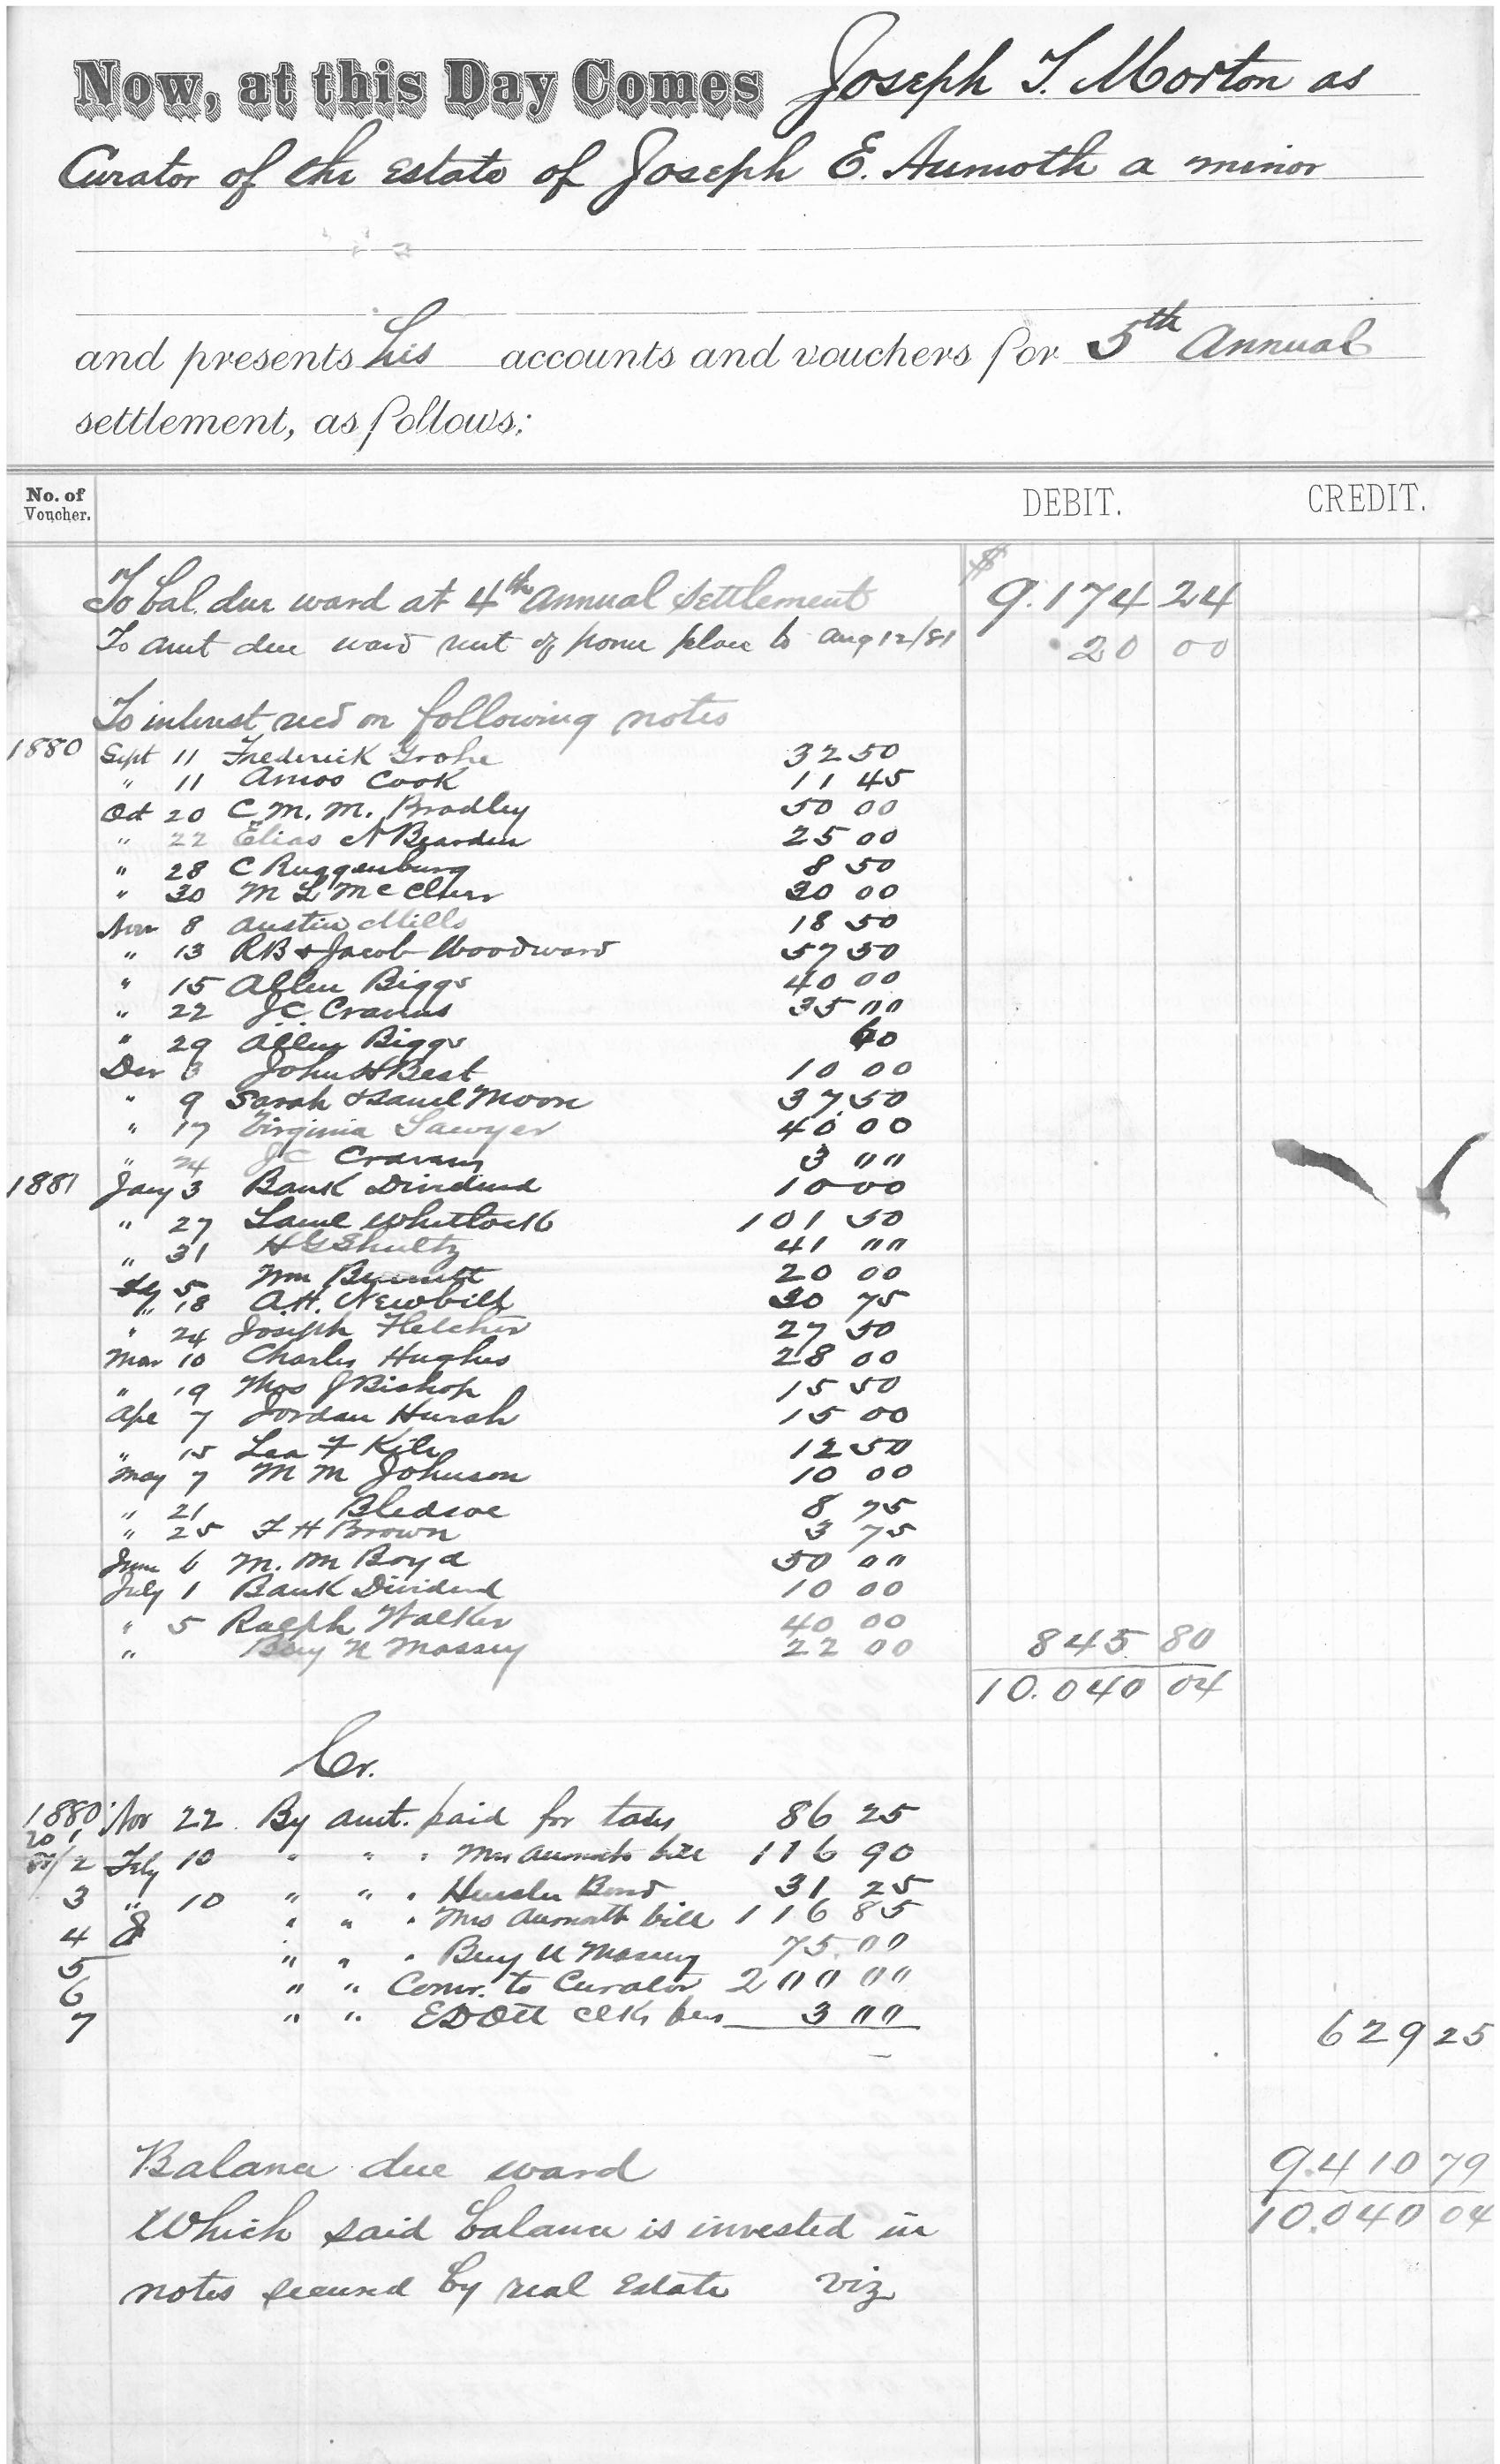 Now, at this Day Comes Joseph T. Morton as
Curator of the Estate of Joseph E. Aumoth a minor
and presents his accounts and vouchers for 5th Annual
settlement, as follows:
No. of Voucher. DEBIT. CREDIT.
To bal. due ward at 4th Annual Settlement $ 9.174 24
To amt due ward rent of home place to Aug 12/81 20 00
To interest recd on following notes
1880 Sept 11 Frederick Grohe 32 50
" 11 Amos Cook 11 45
Oct 20 C. M. M. Bradley 50 00
" 22 Elias N Bearden 25 00
" 28 C Ruggenburg 8 50
" 30 M L McClure 30 00
Nov 8 Austin Mills 18 50
" 13 RB & Jacob Woodward 57 50
" 15 Allen Biggs 40 00
" 22 J.C. Cravens 35 00
" 29 Allen Biggs 60
Dec 3 John H Best 10 00
" 9 Sarah & Saml Moore 37.50
" 17 Virginia Sawyer 40 00
" 24 JC Cravens 3 00
1881 Jany 3 Bank Dividend 10 00
" 27 Saml Whitlock 101 50
" 31 H G Shultz 41 00
Feby 5 Wm Bennett 20 00
" 18 A.H. Newbill 30 75
" 24 Joseph Fletcher 27 50
Mar 10 Charles Hughes 28 00
" 19 Thos J Bishop 15 50
Apl 7 Jordan Hursh 15 00
" 15 Lea F Kile 12 50
May 7 M M Johnson 10 00
" 21 Bledsoe 8 75
" 25 F H Brown 3 75
June 6 M. M Boyd 50 00
July 1 Bank Dividend 10 00
" 5 Ralph Walker 40 00
" Benj U Massey 22 00 845 80
10.040 04
Cr.
1880 1 Nov 22 By amt. paid for taxes 86 25
2 Feby 10 " " " Mrs Aumoth bill 116 90
3 " 10 " " " Hensler Bond 31 25
4 " " " Mrs Aumoth bill 116 85
5 " " " Benj U Massey 75.00
6 " " Comr. to Curator 200 00
7 " " ED Ott clk fees 3 00 629 25
Balance due ward 9.410 79
10.040 04
Which said balance is invested in
notes secured by real Estate viz